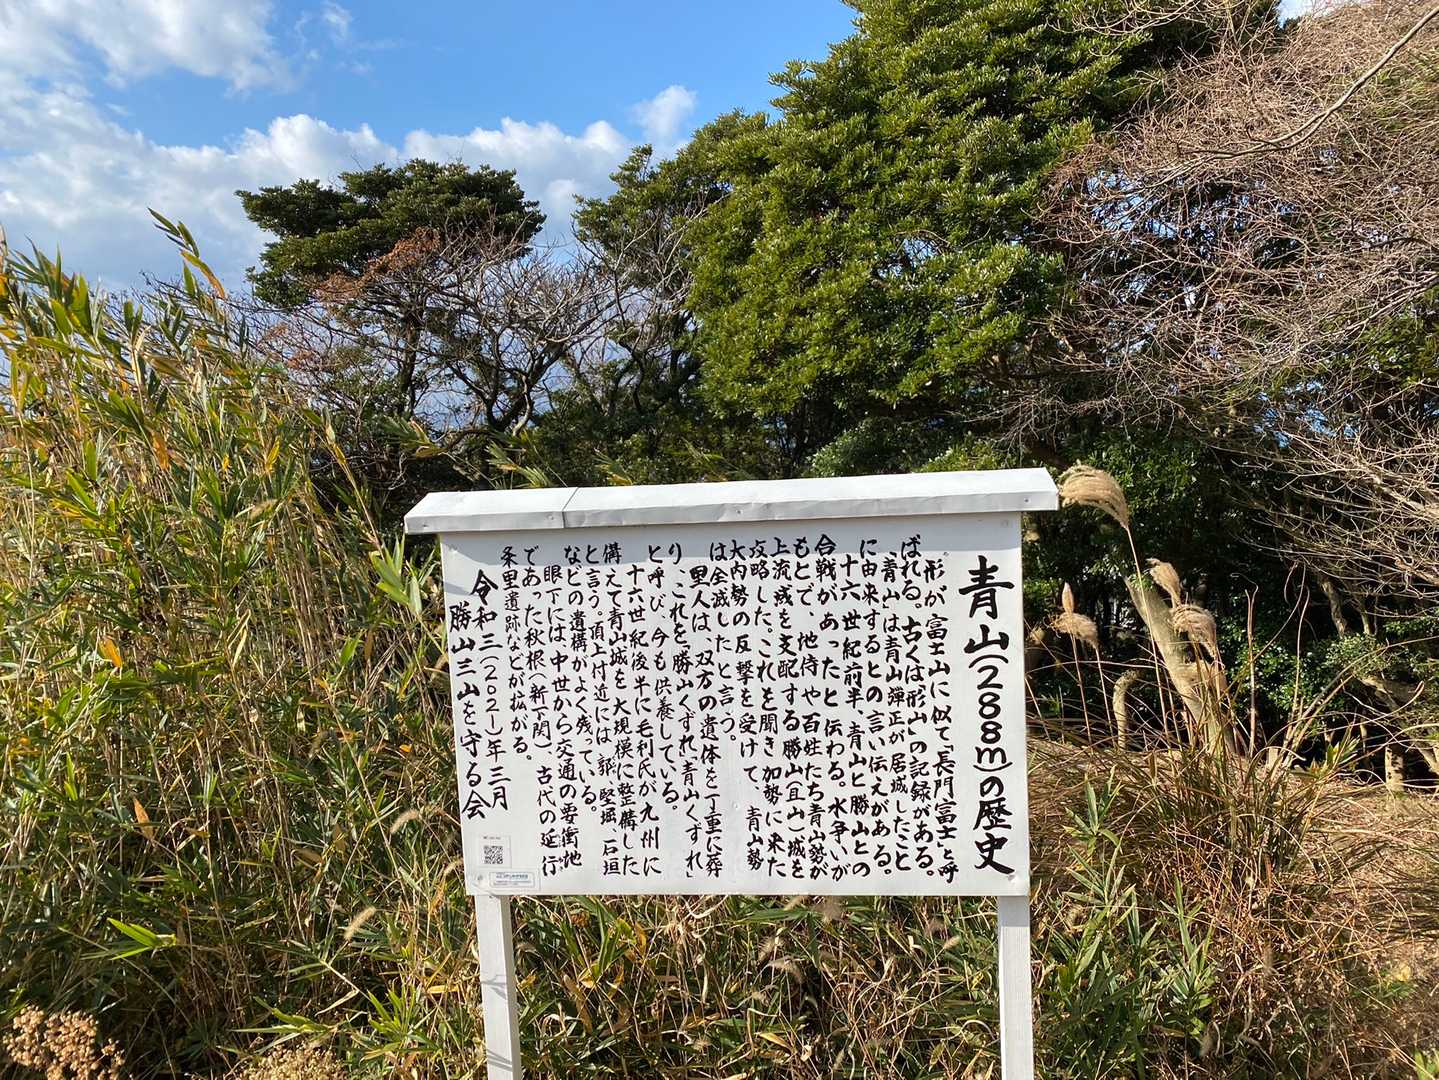 青山(288m)の歴史
形が富士山に似て「長門富士」と呼
ばれる。古くは「形山」の記録がある。
「青山」は青山弾正が居城したこと
に由来するとの言い伝えがある。
十六世紀前半、青山と勝山との
合戦があったと伝わる。水争いが
もとで、地侍や百姓たち青山勢が
上流域を支配する勝山(且山)城を
攻略した。これを聞き加勢に来た
大内勢の反撃を受けて、青山勢
は全滅したと言う。
里人は、双方の遺体を丁重に葬
り、これを「勝山くずれ」「青山くずれ」
と呼び、今も供養している。
十六世紀後半に毛利氏が九州に
備えて青山城を大規模に整備した
と言う。頂上付近には、郭、堅堀、石垣
などの遺構がよく残っている。
眼下には、中世から交通の要衝地
であった秋根(新下関)、古代の延行
条里遺跡などが拡がる。
令和三(2021)年三月
勝山三山を守る会